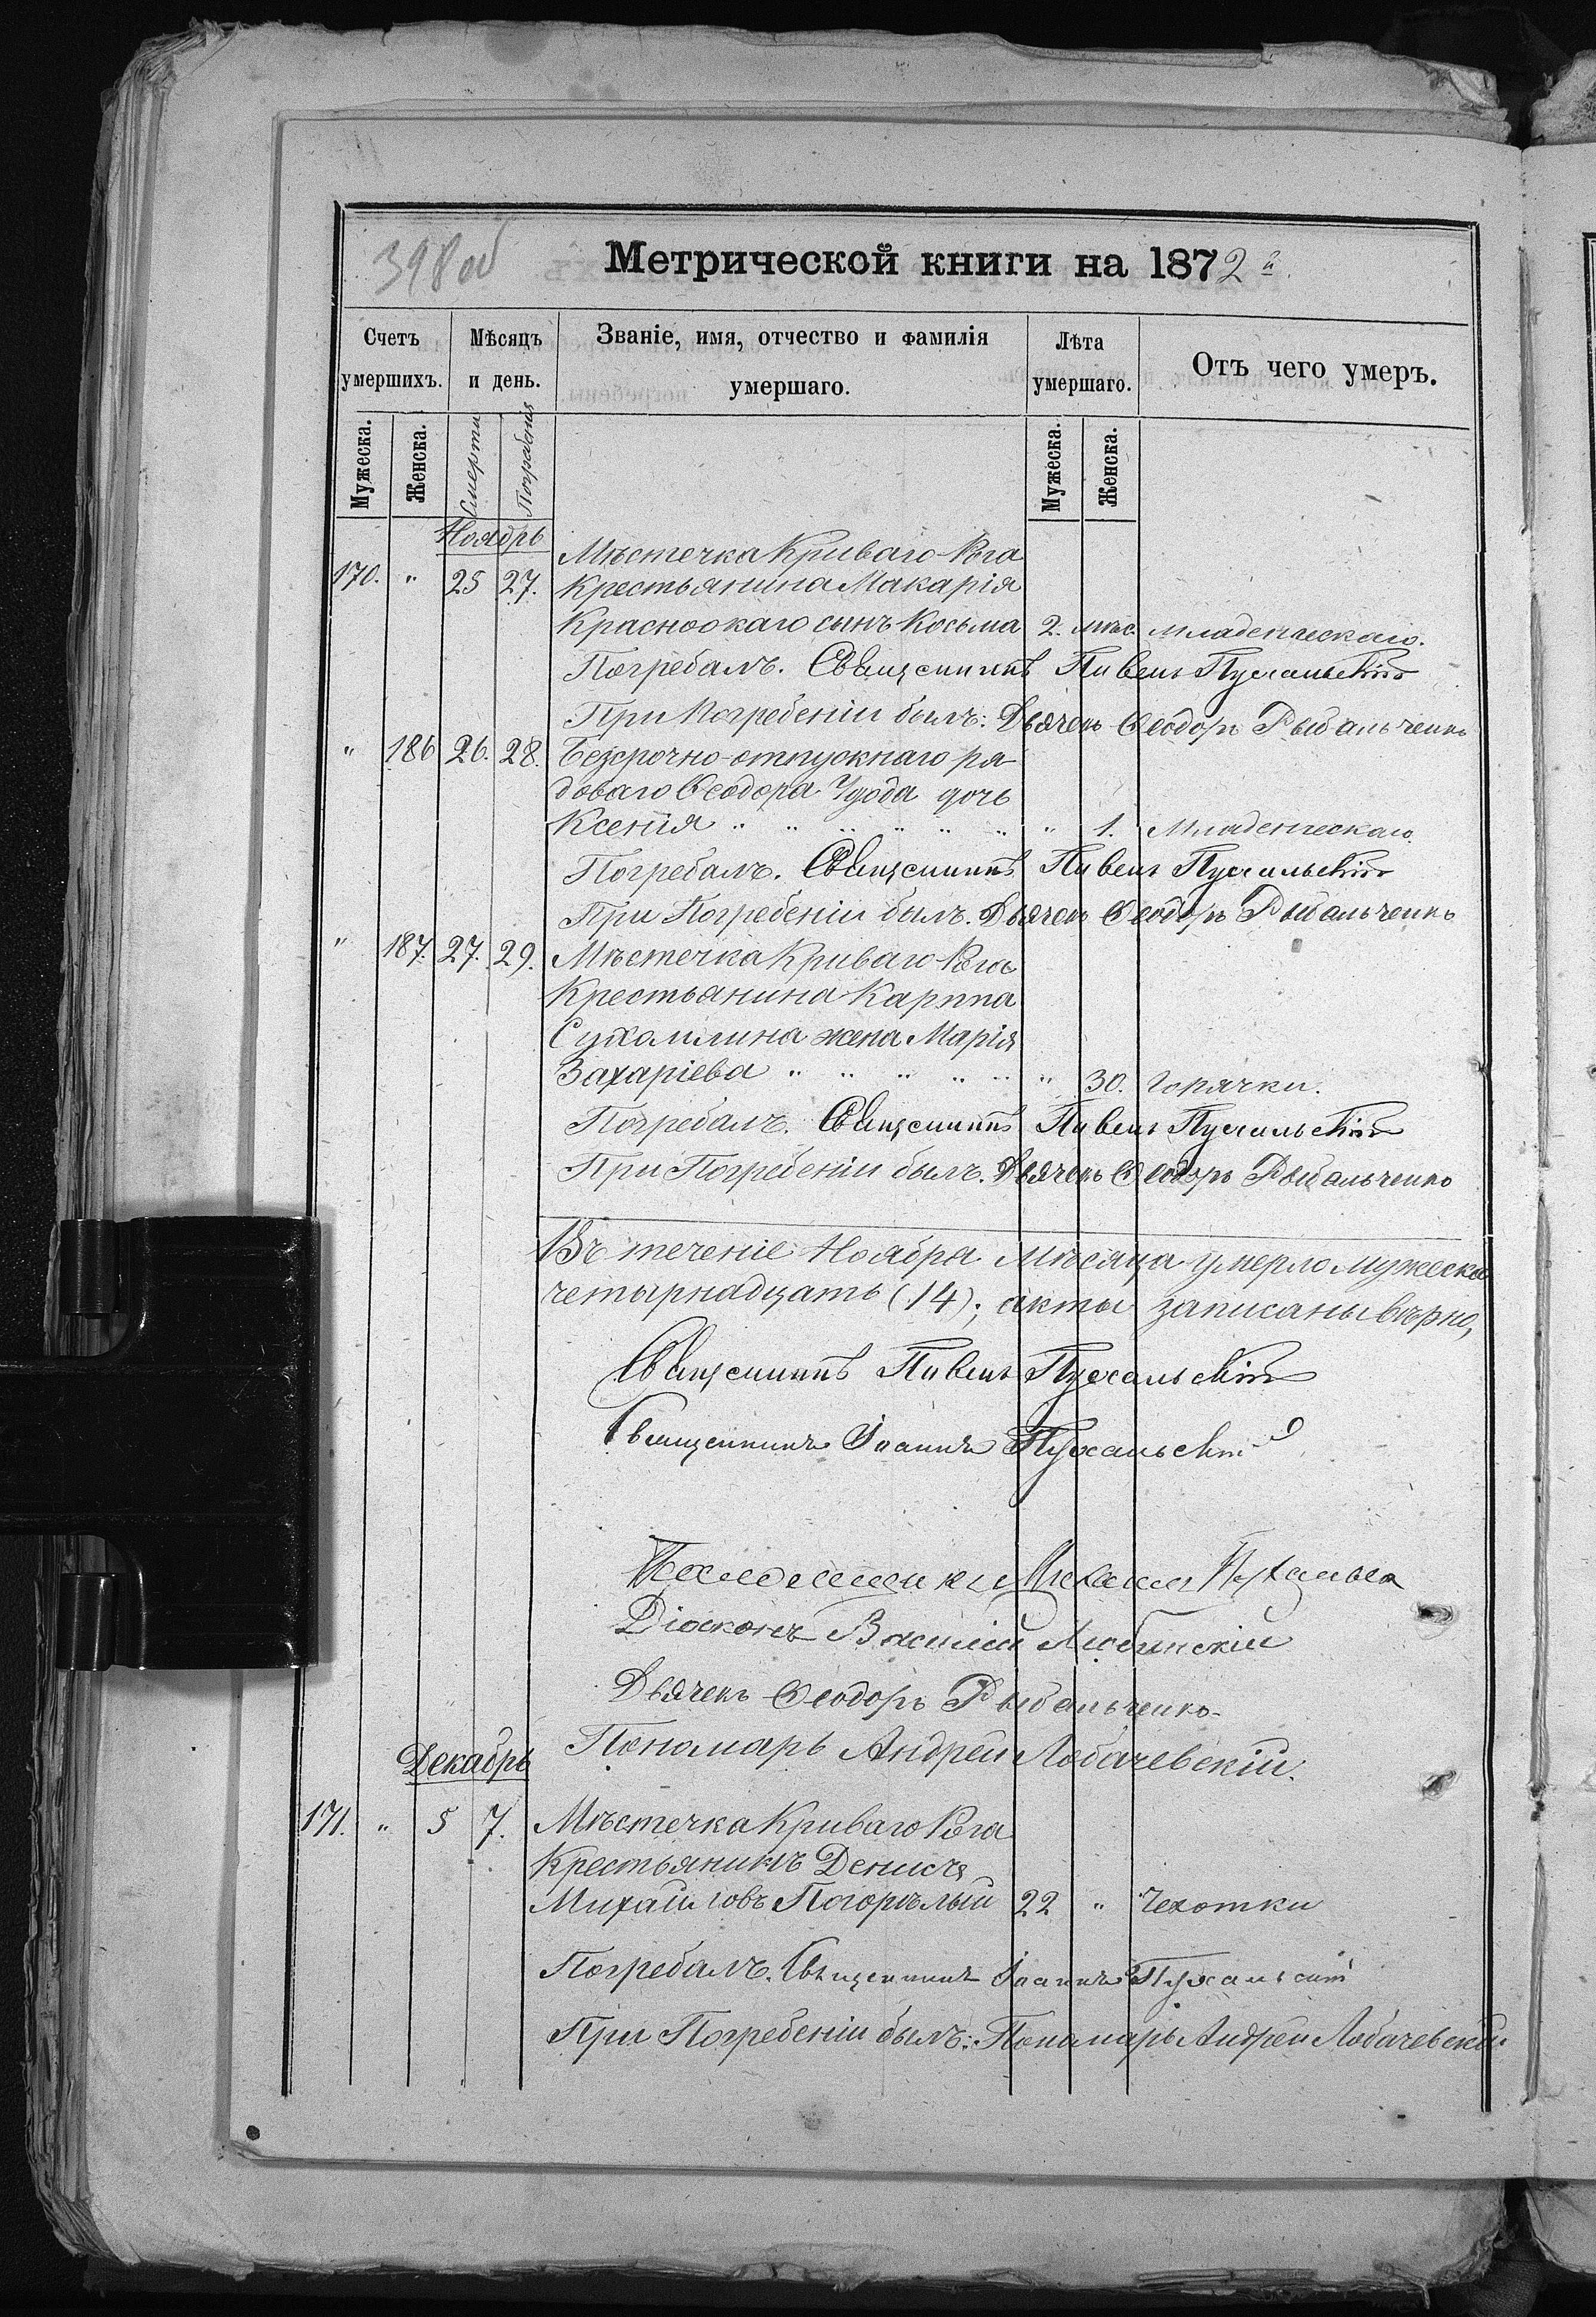 398 об
Метрической книги на 1872 й.
Счетъ умершихъ.
Мѣсяцъ и день.
Званіе, имя, отчество и фамилія умершаго.
Лѣта умершаго.
Отъ чего умеръ.
Мужеска.
Женска.
Смерти
Погребенія
Мужеска.
Женска.
Ноябрь
Мѣстечка Криваго-Рога
170. " 25 27. Крестьянина Макарія
Красноокаго сынъ Косьма 2. мѣс. Младенческаго.
Погребалъ. Священникъ Павелъ Пухальскій
При Погребеніи былъ: Дьячекъ Ѳеодоръ Рыбальченко
" 186 26. 28. Безсрочно-отпускнаго ря-
доваго Ѳеодора Чуба дочь
Ксенія " " " " " " " 1. Младенческаго.
Погребалъ. Священникъ Павелъ Пухальскій
При Погребеніи былъ. Дьячекъ Ѳеодоръ Рыбальченко
" 187. 27. 29. Мѣстечка Криваго-Рога
Крестьянина Карппа
Сухомлина жена Марія
Захаріева " " " " " " 30. Горячки.
Погребалъ. Священникъ Павелъ Пухальскій
При Погребеніи былъ. Дьячекъ Ѳеодоръ Рыбальченко
Въ теченіе Ноября Мѣсяца умерло мужеска
четырнадцать (14); акты записаны вѣрно,
Священникъ Павелъ Пухальскій
Священникъ Іоаннъ Пухальскій
Михаилъ
Діаконъ Василій Любинскій
Дьячекъ Ѳеодоръ Рыбальченко
Пономарь Андрей Лобачевскій.
Декабрь
171. " 5 7. Мѣстечка Криваго Рога
Крестьянинъ Денисъ
Михайловъ Погорѣлый 22 " Чехотки
Погребалъ. Священникъ Іоаннъ Пухальскій
При Погребеніи былъ: Пономарь Андрей Лобачевскій.